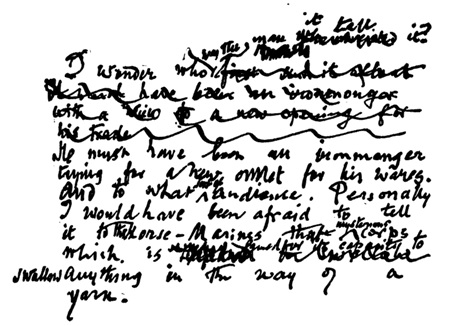 it tell
the man it?
I wonder who first said it about
have been an ironmonger
with a view to a new opening for
his trade
He must have been an ironmonger
trying for a new outlet for his wares.
And to what audience. Personally
I would have been afraid to tell
mysterious
it to the Horse-Marines that corps
which is famed for its capacity to
swallow anything in the way of a
yarn.